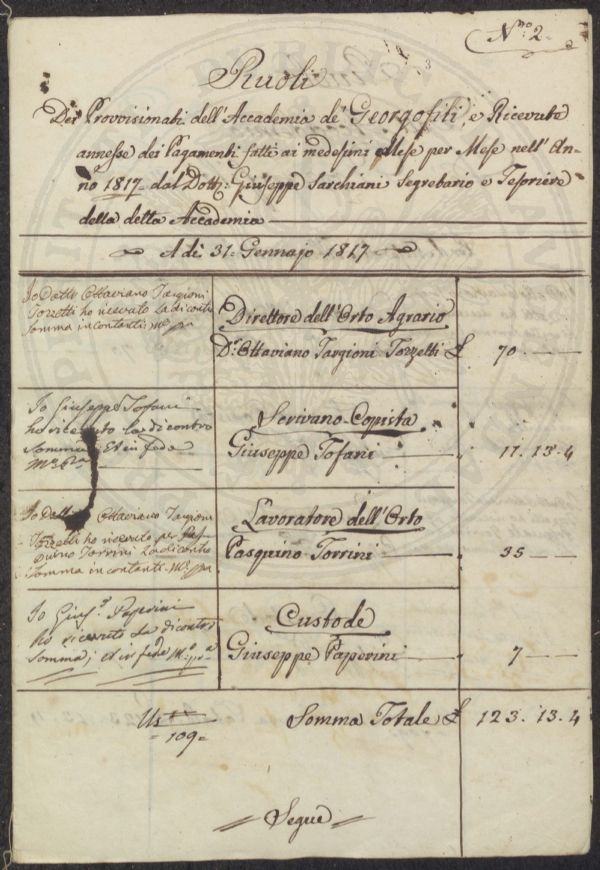 N.ro 2.
Ruoli
Dei Provvisionati dell'Accademia de' Georgofili, e Ricevute
annesse dei Pagamenti fatti ai medesimi Mese per Mese nell'An-
no 1817 dal Dott: Giuseppe Sarchiani Segretario e Tesoriere
della detta Accademia
A dì 31. Gennajo 1817
Io Dott. Ottaviano Targioni
Tozzetti ho ricevuto la di contro
Somma in contanti. M.o p.a
Direttore dell'Orto Agrario
D.r Ottaviano Targioni Tozzetti £ 70
Io Giuseppe Tofani
ho ricevuto la di contro
Somma Et in fede
M.o p.a
Scrivano-Copista
Giuseppe Tofani 11. 13. 4
Io Dott. Ottaviano Targioni
Tozzetti ho ricevuto per Pas-
quino Torrini la di contro
Somma in contanti. M.o p.a
Lavoratore dell'Orto
Pasquino Torrini 35
Io Gius.e Paperini
ho ricevuto la di contro
Somma; et in fede M.o p.a
Custode
Giuseppe Paperini 7
109
Somma Totale £ 123. 13. 4
Segue